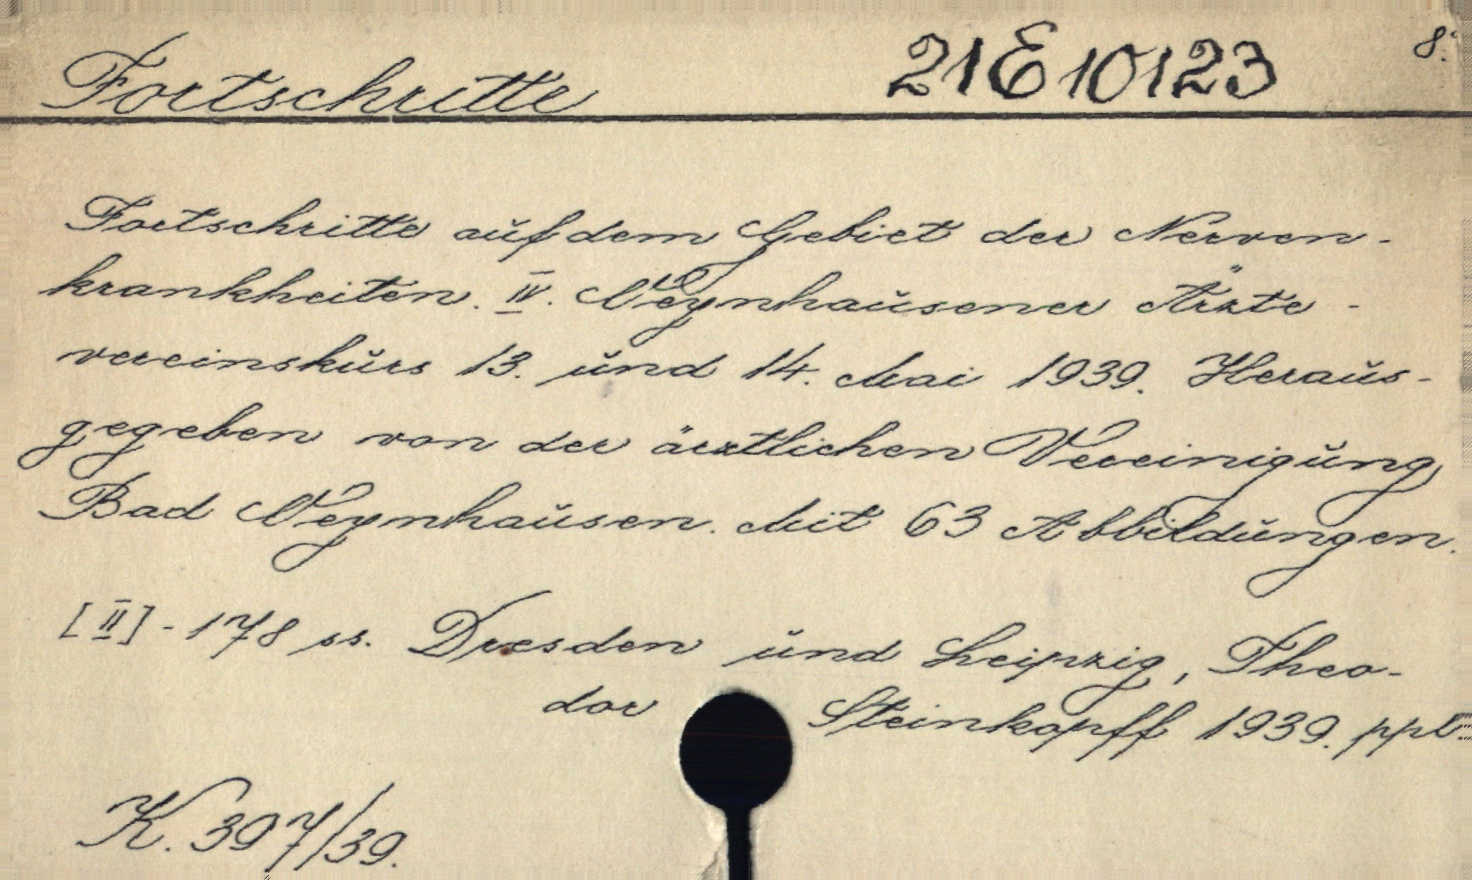 Fortschritte 21E10123 8.
Fortschritte auf dem Gebiet der Nerven-
krankheiten. IV. Oeynhausener Ärzte-
vereinskurs 13. und 14. Mai 1939. Heraus-
gegeben von der ärztlichen Vereinigung
Bad Oeynhausen. Mit 63 Abbildungen.
[II] - 178 ss. Dresden und Leipzig, Theo-
dor Steinkopff 1939. ppb.
K. 397/39.